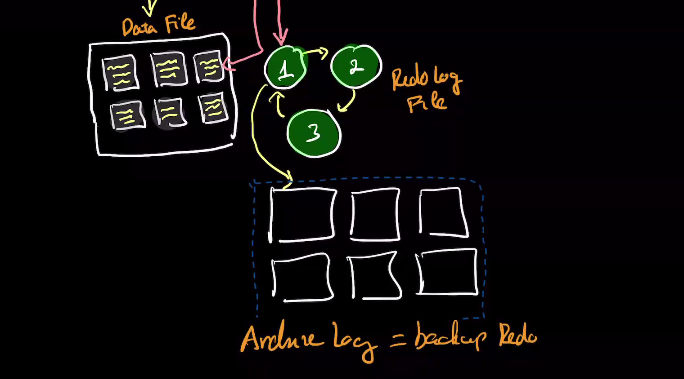 Data File
1
2
Redo Log
File
3
Archive Log = backup Redo